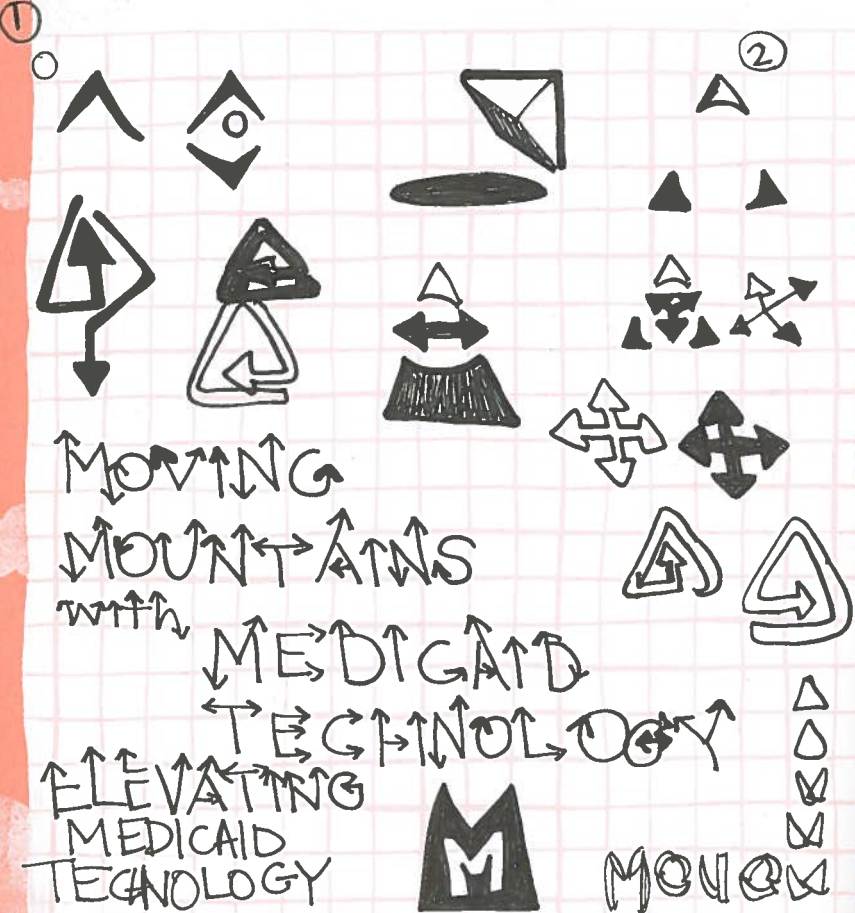 1
2
MOVING
MOUNTAINS
with
MEDICAID
TECHNOLOGY
ELEVATING
MEDICAID
TECHNOLOGY
M
M